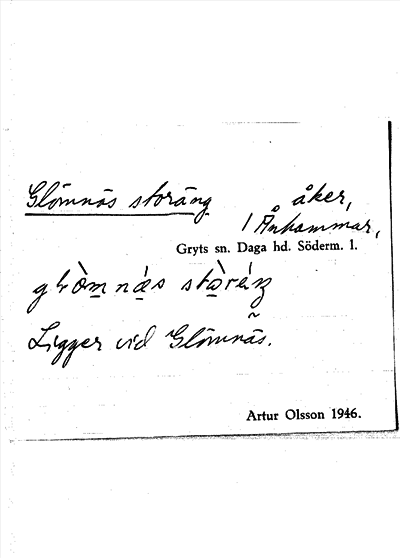 Glömnäs storäng åker,
/ Ånhammar,
Gryts sn. Daga hd. Söderm. l.
Ligger vid Glömnäs.
Artur Olsson 1946.